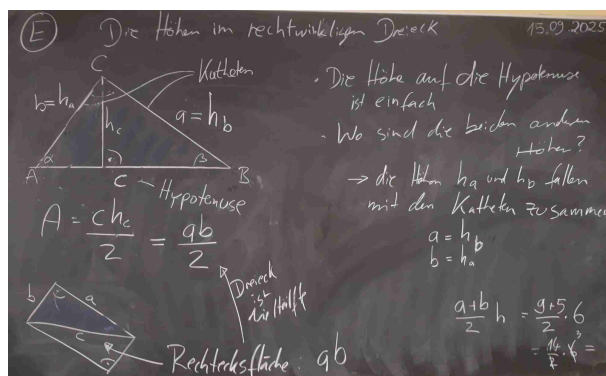 E Die Höhen im rechtwinkligen Dreieck 15.09.2025
C
Katheten
b=hₐ
a = h_b
h_c
α
β
A
B
c – Hypotenuse
A = ch_c/2 = ab/2
Dreieck
ist
die Hälfte
b
a
c
Rechtecksfläche: ab
· Die Höhe auf die Hypotenuse
ist einfach
· Wo sind die beiden anderen
Höhen?
→ die Höhen hₐ und h_b fallen
mit den Katheten zusammen
a = h_b
b = hₐ
a+b/2 h = 9+5/2 · 6
= 14/2 · 6 3 =